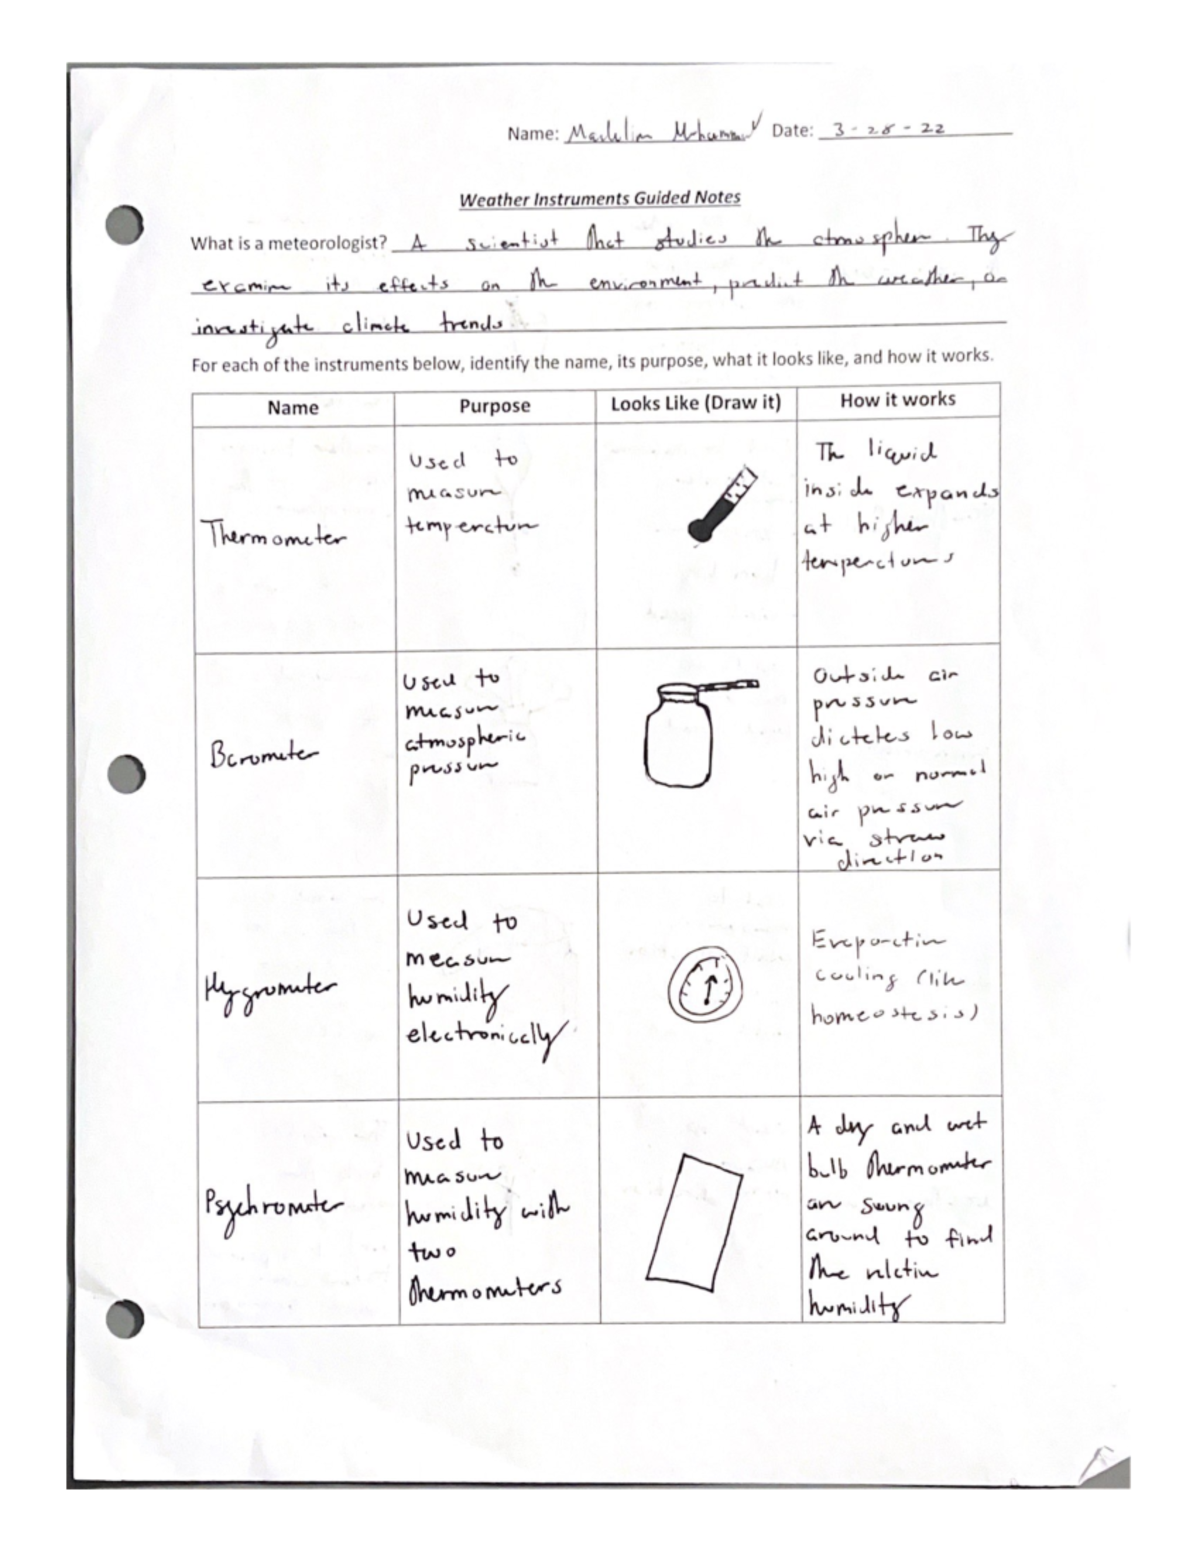 Name: Date: 3-28-22
Weather Instruments Guided Notes
What is a meteorologist? A scientist that studies the atmosphere. They
examine its effects on the environment, predict the weather, or
investigate climate trends
For each of the instruments below, identify the name, its purpose, what it looks like, and how it works.
Name Purpose Looks Like (Draw it) How it works
Thermometer
Used to
measure
temperature
The liquid
inside expands
at higher
temperatures
Barometer
Used to
measure
atmospheric
pressure
Outside air
pressure
dictates low
high or normal
air pressure
via straw
direction
Hygrometer
Used to
measure
humidity
electronically
Evaporative
cooling (like
homeostasis)
Psychrometer
Used to
measure
humidity with
two
thermometers
A dry and wet
bulb thermometer
are swung
around to find
the relative
humidity